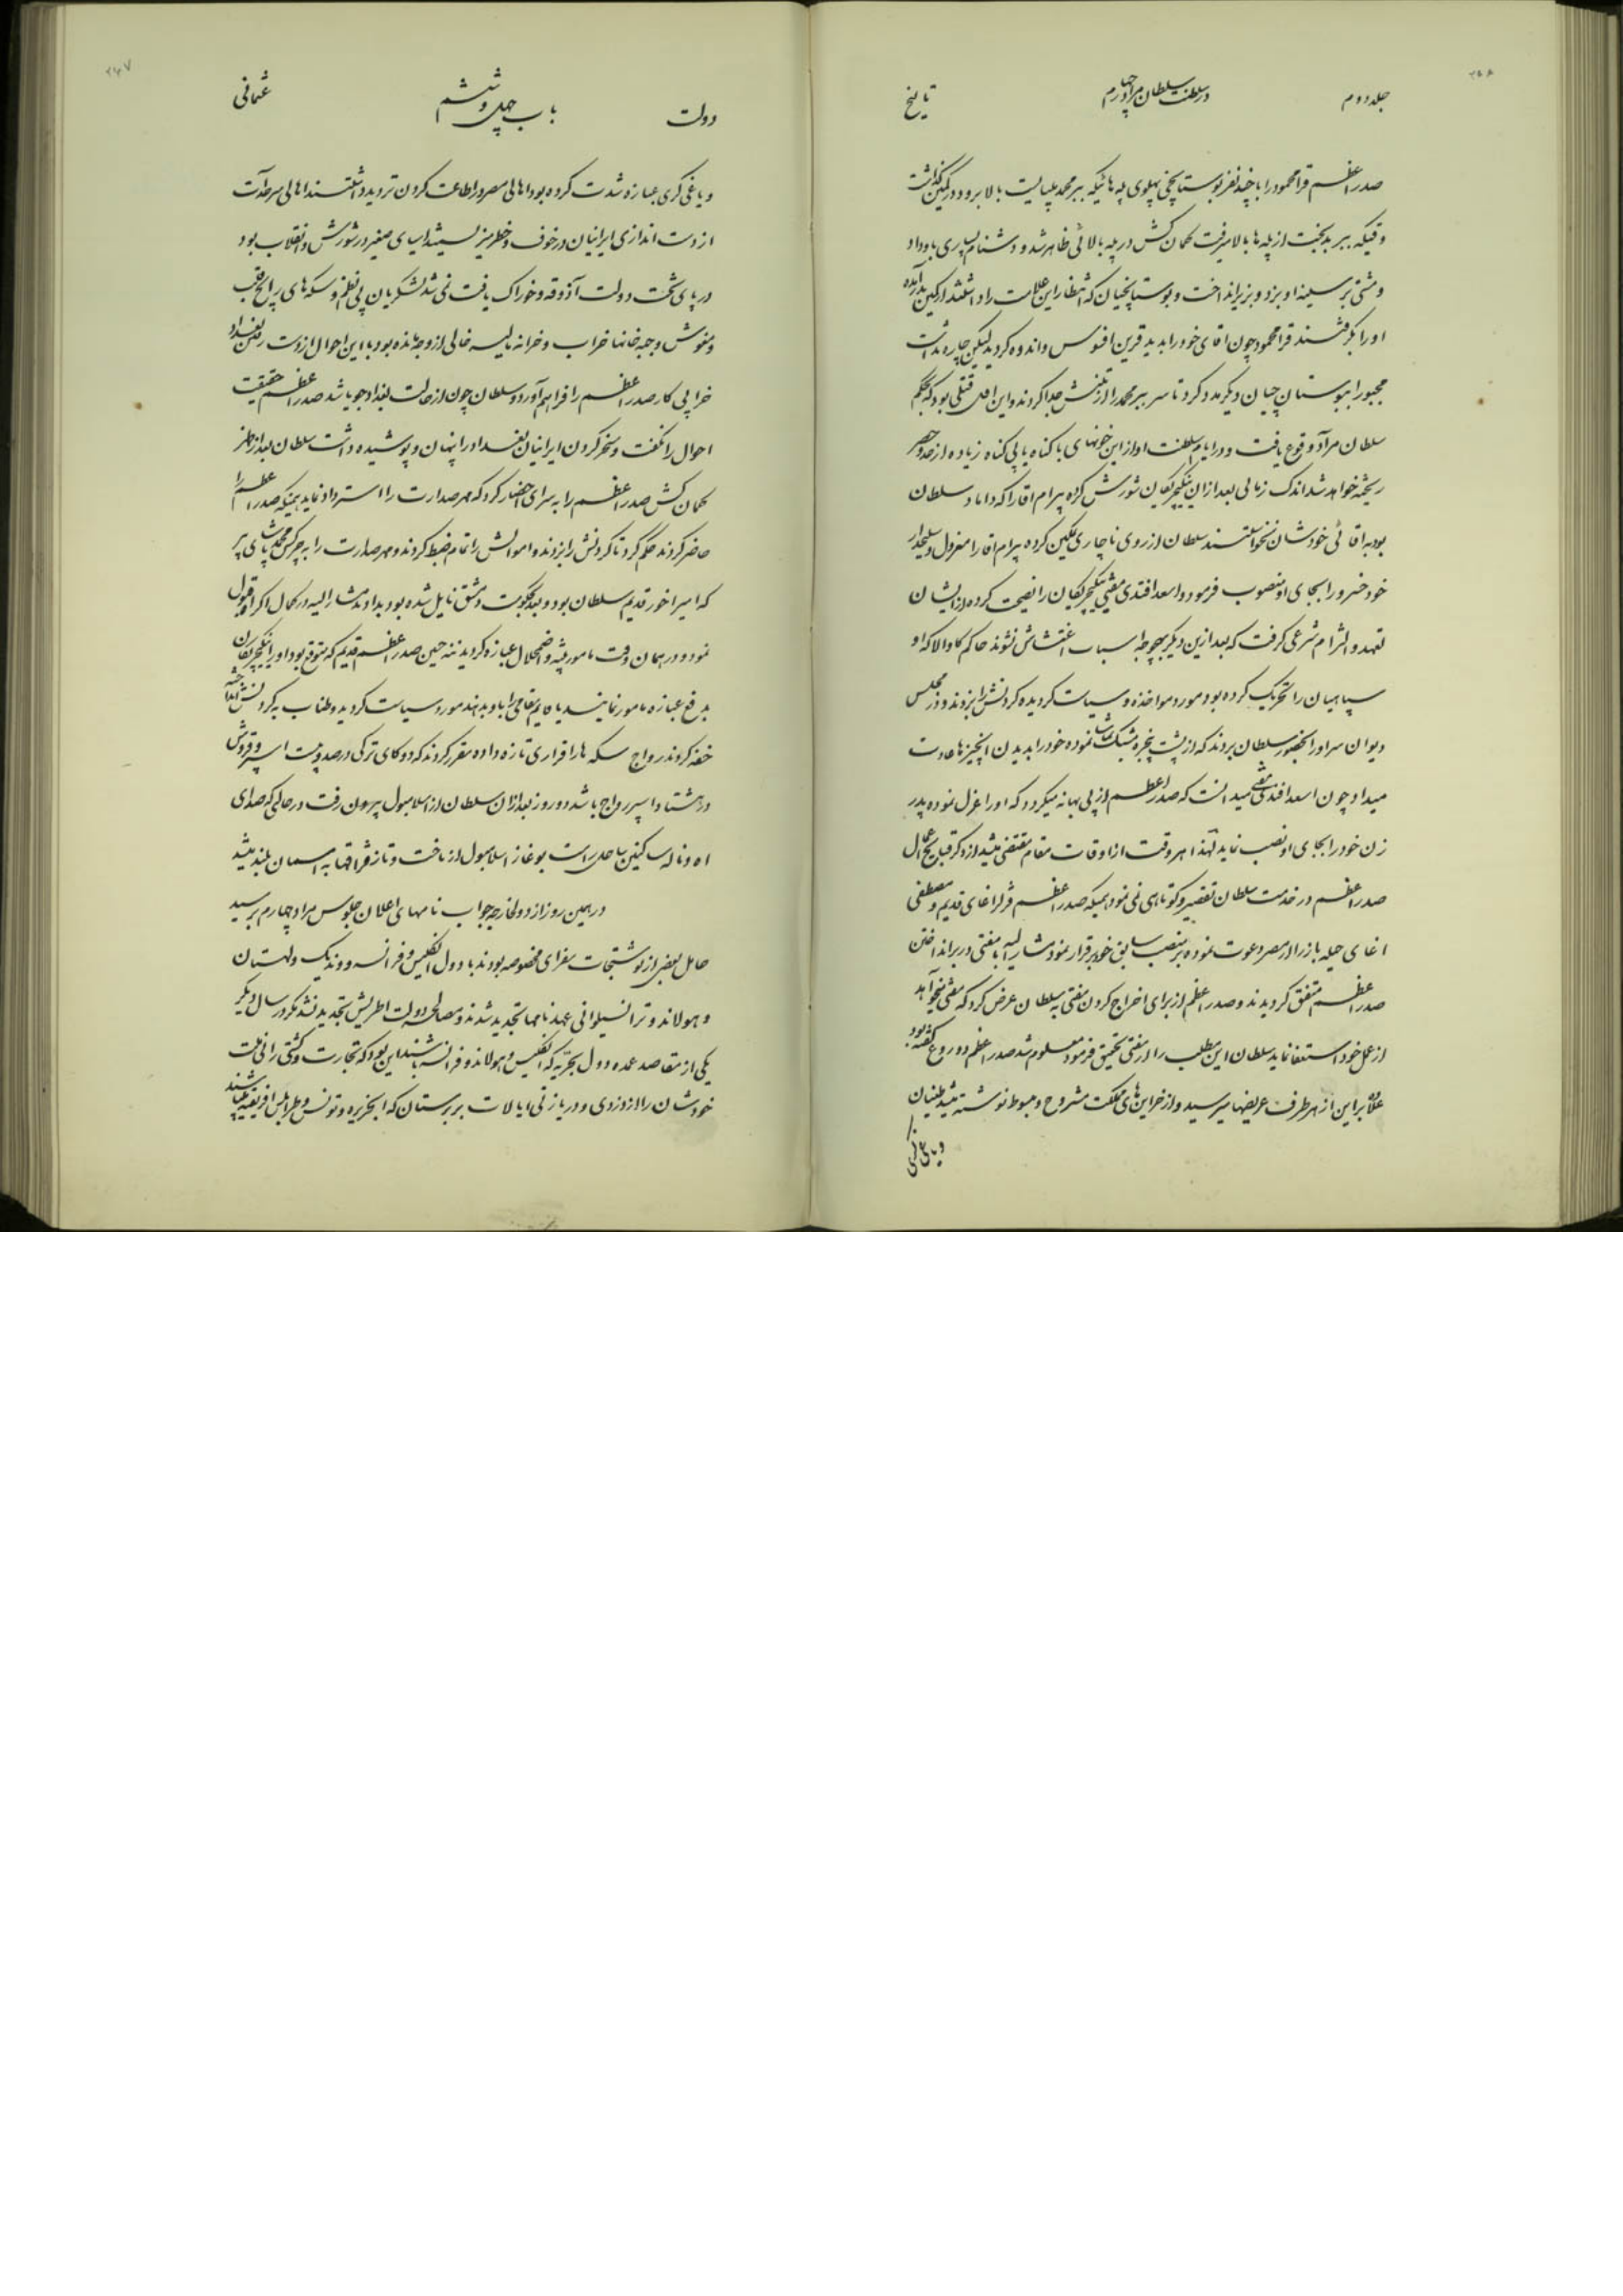 جلد دوم
در سلطنت سلطان مراد چهارم
تاریخ
صدر اعظم قرا محمود را با چند نفر بوستانچی پهلوی پله هائیکه ببر محمد میبایست بالا برود در کمین گذاشت
وقتیکه ببر بدبخت از پله ها بالا میرفت کمان کش در پله بالائی ظاهر شد و دشنام بسیاری باو داد
و مشتی بر سینه او بزد و بزیر انداخت و بوستانچیان که انتظار این علامت را داشتند از کمین بدر آمده
او را بگرفتند قرا محمود چون اقای خود را بدید قرین افسوس و اندوه گردید لیکن چاره نداشت
مجبورا ببوستان چیان دیگر مدد کرد تا سر ببر محمد را از تنش جدا کردند و این اول قتلی بود که بحکم
سلطان مراد وقوع یافت و در ایام سلطنت او ازین خونهای با گناه یا بی گناه زیاده از حد و حصر
ریخته خواهد شد اندک زمانی بعد ازان ینگیچریکان شورش کرده بیرام اقا را که داماد سلطان
بود به اقائی خودشان نخواستند سلطان از روی ناچاری تمکین کرده بیرام اقا را معزول و سلحدار
خود خسرو را بجای او منصوب فرمود و اسعد افندی مفتی ینگیچریکان را نصیحت کرده از ایشان
تعهد و التزام شرعی گرفت که بعد ازین دیگر بهیچوجه اسباب اغتشاش نشوند حاکم کاوالا که او
سپاهیان را تحریک کرده بود مورد مواخذه و سیاست گردیده گردنش را بزدند و در مجلس
دیوان سر او را بحضور سلطان بردند که از پشت پنجره مشبک تماشا نموده خود را بدیدن این چیزها عادت
میداد چون اسعد افندی مفتی میدانست که صدر اعظم از پی بهانه میگردد که او را عزل نموده پدر
زن خود را بجای او نصب نماید لهذا هر وقت از اوقات مقام مقتضی میشد از ذکر قبایح اعمال
صدر اعظم در خدمت سلطان تقصیر و کوتاهی نمی نمود همینکه صدر اعظم قزلر اغای قدیم مصطفی
اغای حیله باز را از مصر دعوت نموده بر منصب سابق خود برقرار نمود مشار الیه با مفتی در برانداختن
صدر اعظم متفق گردیدند و صدر اعظم از برای اخراج کردن مفتی به سلطان عرض کرد که مفتی میخواهد
از عمل خود استعفا نماید سلطان این مطلب را از مفتی تحقیق فرمود معلوم شد صدر اعظم دروغ گفته بود
علاوه براین از هر طرف عریضها میرسید و از خرابیهای مملکت مشروح و مبسوط نوشته میشد طغیان
و یاغی گری
دولت
باب چهل و ششم
عثمانی
۲۴۷
و یاغی گری عبازه شدت کرده بود اهالی مصر در اطاعت کردن تردید داشتند اهالی سرحدات
از دست اندازی ایرانیان در خوف و خطر میزیستند اسیای صغیر در شورش و انقلاب بود
در پای تخت دولت آذوقه و خوراک یافت نمی شد لشکریان بی نظم و سکه های رایج قلب
و مغشوش و جبه خانها خراب و خزانه مالیه خالی از وجه مانده بود با این احوال از دست رفتن بغداد
خرابی کار صدر اعظم را فراهم آورد و سلطان چون از حالت بغداد جویا شد صدر اعظم حقیقت
احوال را نگفت و مسخر کردن ایرانیان بغداد را پنهان و پوشیده داشت سلطان بعد از نماز
کمان کش صدر اعظم را به سرای احضار کرد که مهر صدارت را استرداد نماید همینکه صدر اعظم را
حاضر کردند حکم کرد تا گردنش را بزدند و اموالش را تمام ضبط کردند و مهر صدارت را به چرکس محمد پاشای پیر
که امیر اخور قدیم سلطان بود و بعد بحکومت دمشق نایل شده بود بدادند مشار الیه در کمال اکراه قبول
نمود و در همان وقت مامور تنبیه و اضمحلال عبازه گردید حسین صدر اعظم قدیم که متوقع بود او را ینگیچریکان
بدفع عبازه مامور نمایند یا قایم مقامی را باو بدهند مورد سیاست گردید و طناب به گردنش انداخته
خفه کردند رواج سکه ها را قراری تازه داده مقرر کردند که دوکای ترکی در صد و بیست اسپر و قروش
در هشتاد اسپر رواج باشد دو روز بعد ازان سلطان از اسلامبول بیرون رفت در حالی که صدای
اه و ناله ساکنین ساحل راست بوغاز اسلامبول از تاخت و تاز قزاقها به اسمان بلند میشد
در همین روز از دول خارجه جواب نامهای اعلان جلوس مراد چهارم برسید
حامل بعضی از نوشتجات سفرای مخصوصه بودند با دول انگلیس و فرانسه و وندیک و لهستان
و هولاند و ترانسیلوانی عهد نامها تجدید شدند و مصالحه دولت اطریش تجدید نشد مگر در سال دیگر
یکی از مقاصد عمده دول بحریه که انگلیس و هولاند و فرانسه باشند این بود که تجارت و کشتی رانی ملت
خودشان را از دزدی و دریازنی ایالات بربرستان که الجزیره و تونس و طرابلس افریقیه باشند